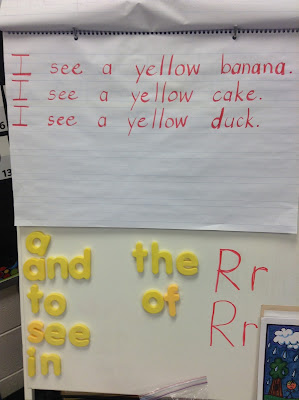 I see a yellow banana.
I see a yellow cake.
I see a yellow duck.
a
and
to
see
in
the
of
Rr
Rr
13